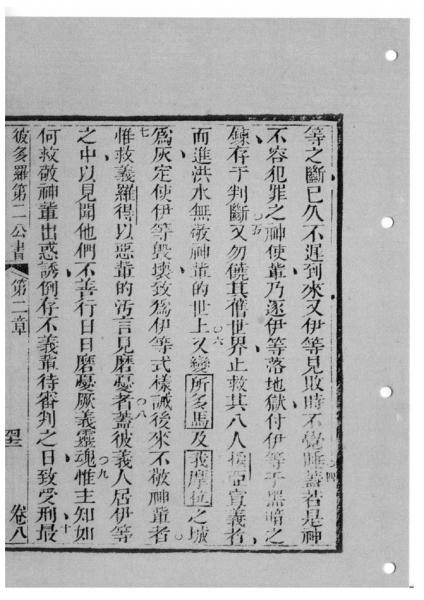 等之斷已久不遲到來又伊等見敗時不覺睡蓋若是神
四
不容犯罪之神使輩乃逐伊等落地獄付伊等于黑暗之
五
鍊存于判斷又勿饒其舊世界止救其八人 宣義者
而進洪水無敬神輩的世上又變所多馬及我摩拉之城
六
爲灰定使伊等毀壞致爲伊等式樣誡後來不敬神輩者
七
惟救義羅得以惡輩的污言見磨憂者蓋彼義人居伊等
八
之中以見聞他們不善行日日磨憂厥義靈魂惟主知如
九
何救敬神輩出惑誘倒存不義輩待審判之日致受刑最
十
彼多羅第二公書 第二章 卷八